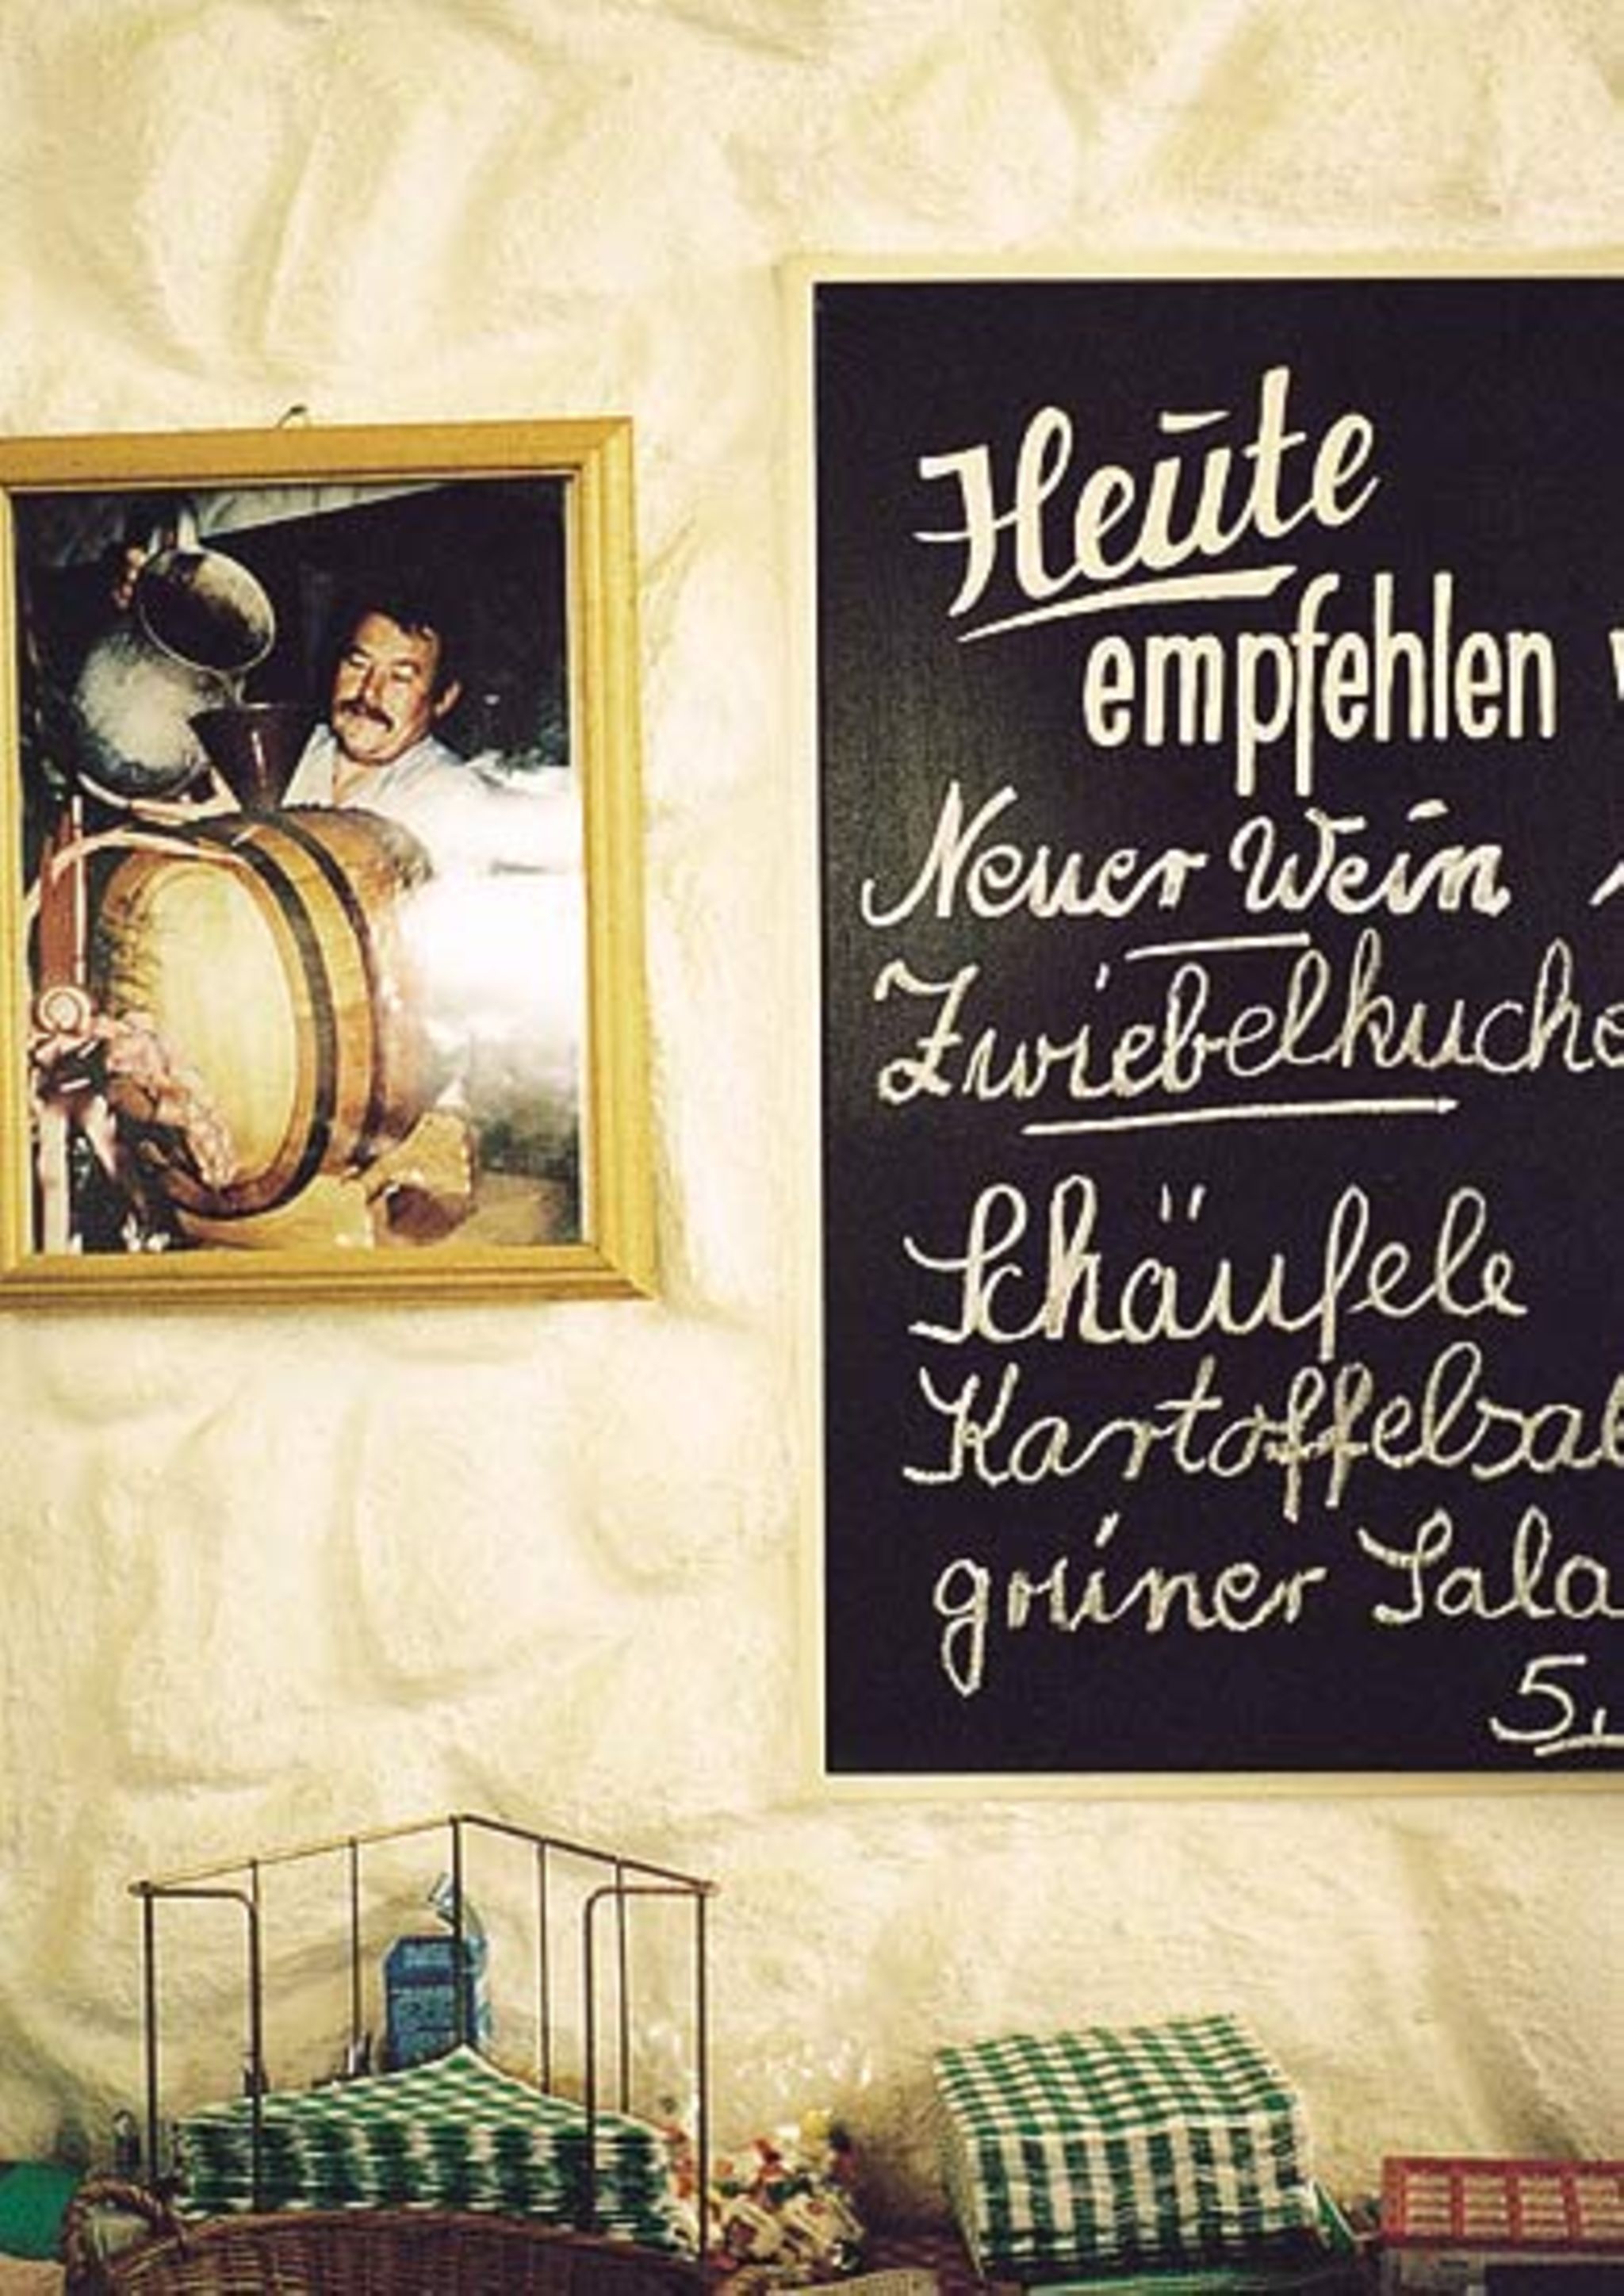 Heute
empfehlen w
Neuer Wein
Zwiebelkuche
Schäufele
Kartoffelsal
grüner Sala
5,